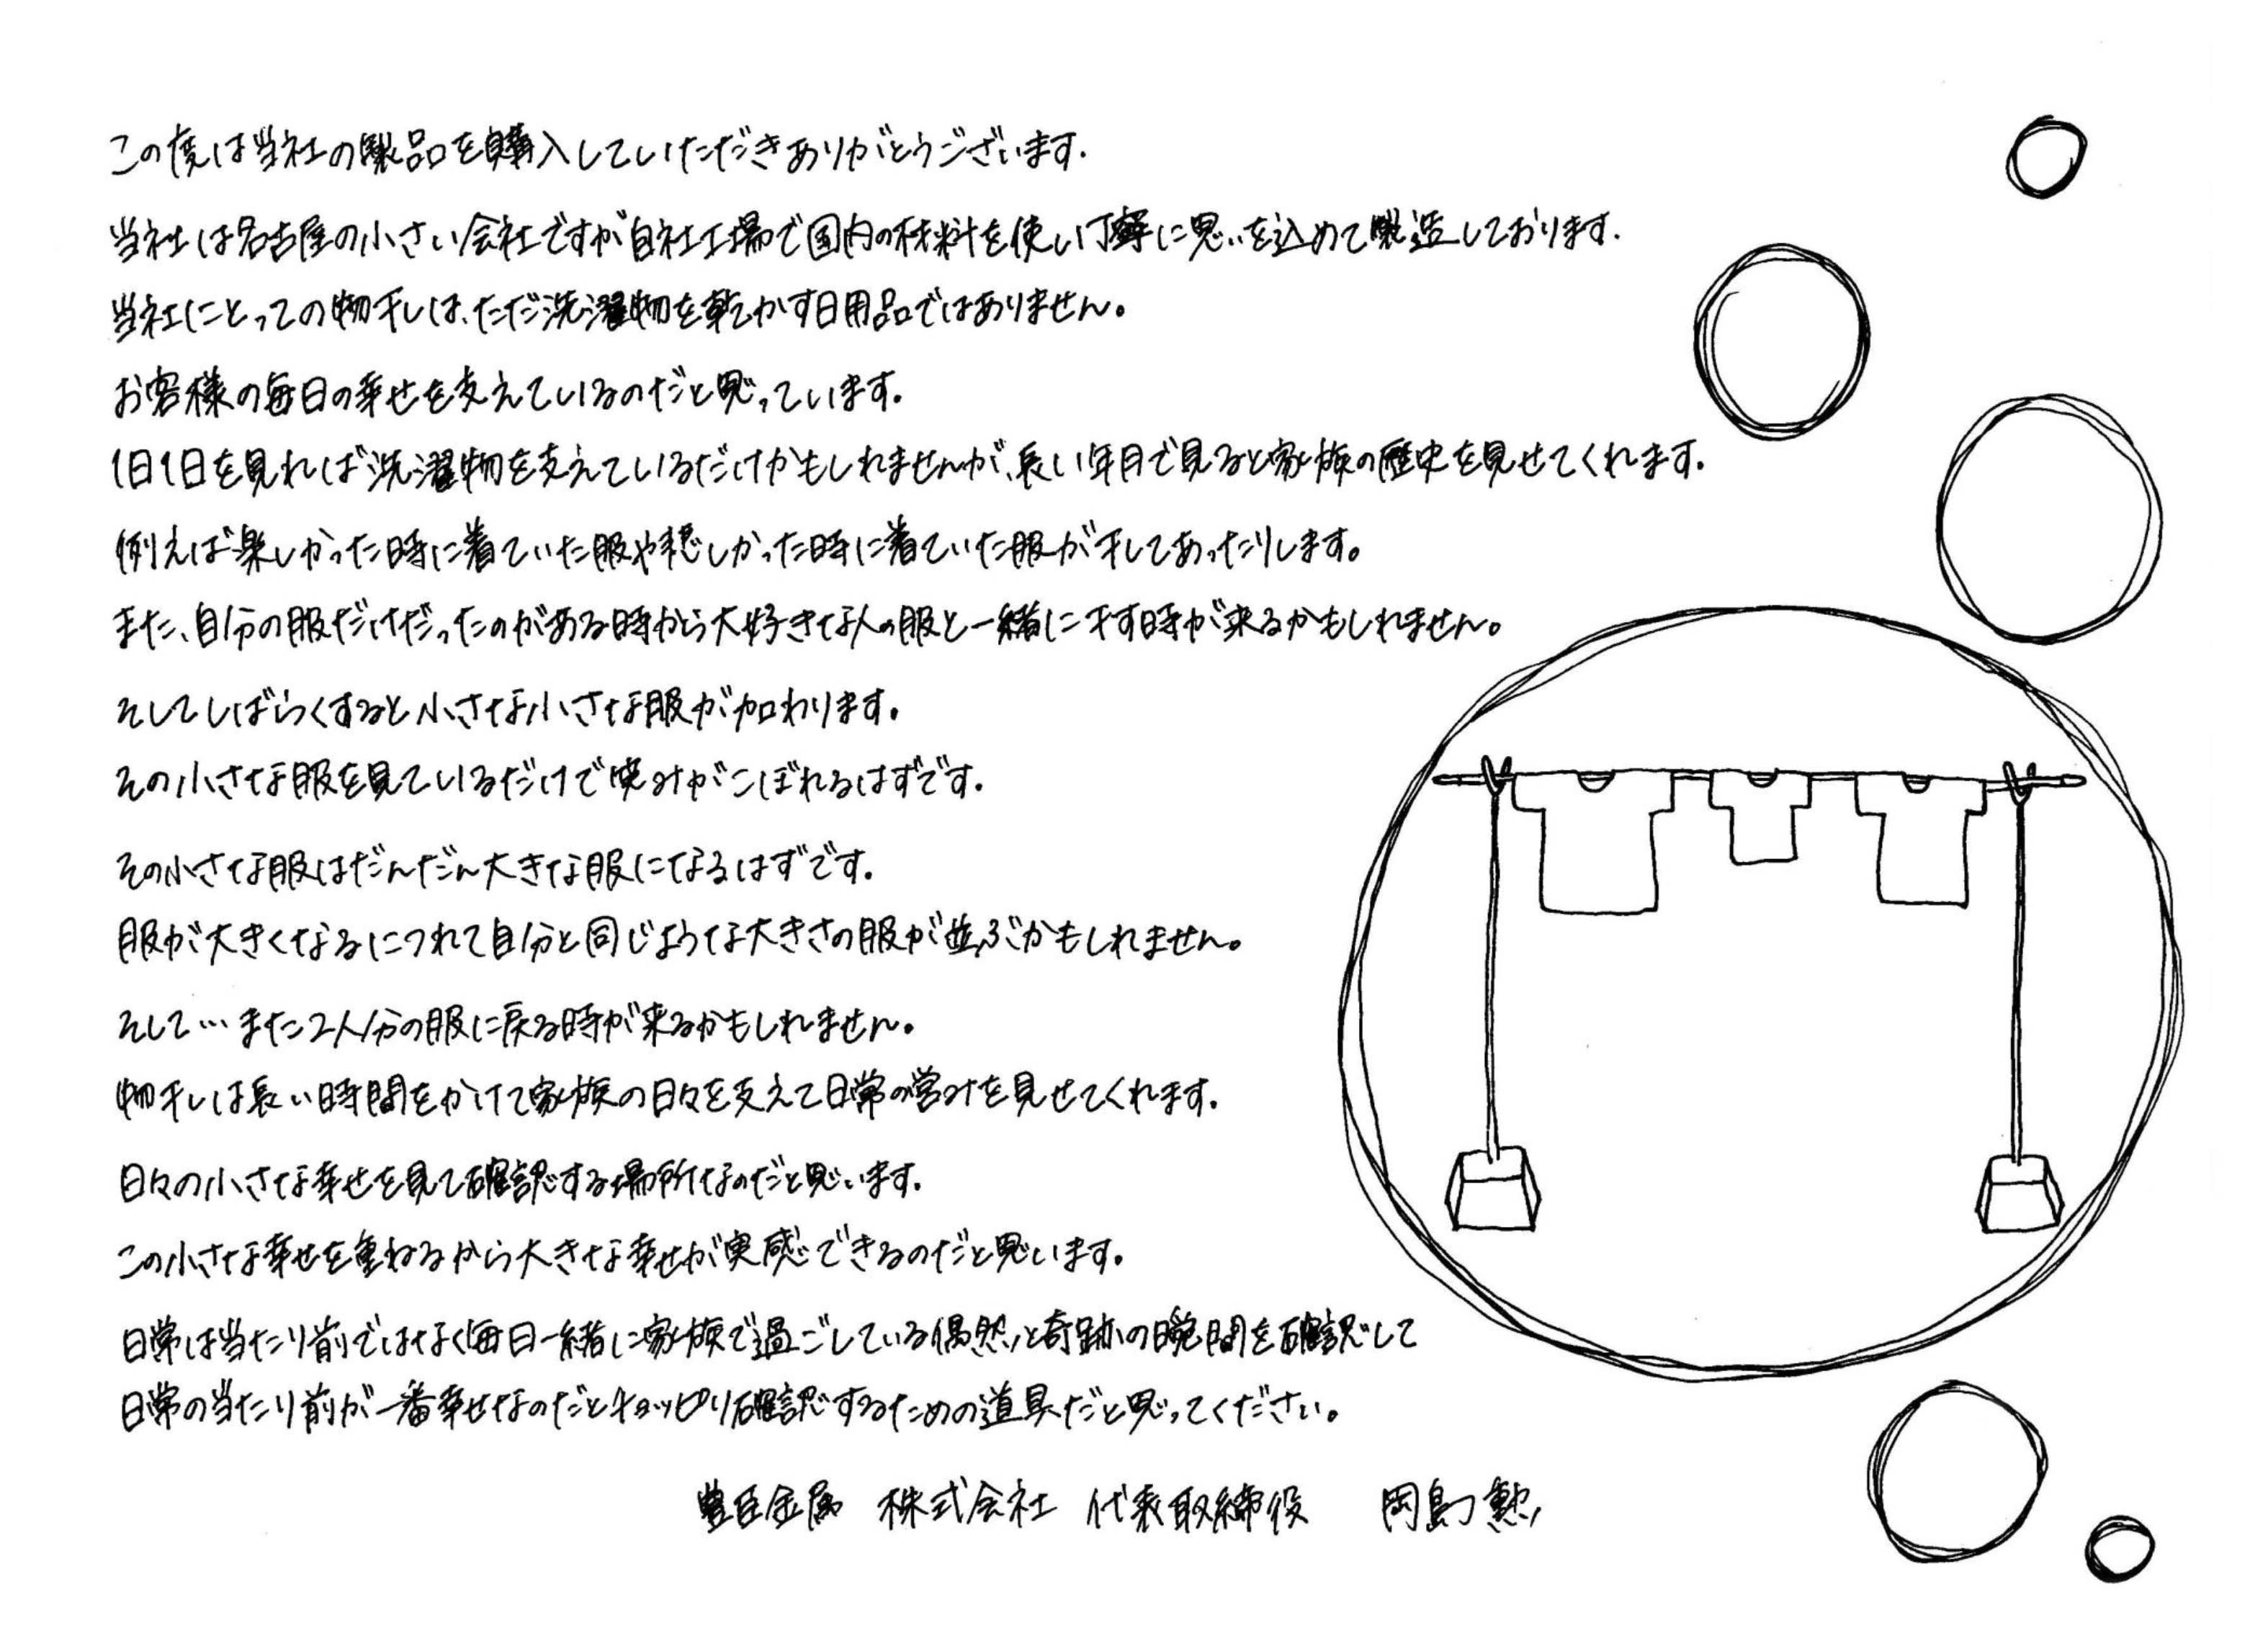 この度は当社の製品を購入していただきありがとうございます.
当社は名古屋の小さい会社ですが自社工場で国内の材料を使い丁寧に思いを込めて製造しております.
当社にとっての物干しは、ただ洗濯物を乾かす日用品ではありません。
お客様の毎日の幸せを支えているのだと思っています。
1日1日を見れば洗濯物を支えているだけかもしれませんが、長い年月で見ると家族の歴史を見せてくれます。
例えば楽しかった時に着ていた服や悲しかった時に着ていた服が干してあったりします。
また、自分の服だけだったのがある時から大好きな人の服と一緒に干す時が来るかもしれません。
そしてしばらくすると小さな小さな服が加わります。
その小さな服を見ているだけで笑みがこぼれるはずです。
その小さな服はだんだん大きな服になるはずです。
服が大きくなるにつれて自分と同じような大きさの服が並ぶかもしれません。
そして…また2人分の服に戻る時が来るかもしれません。
物干しは長い時間をかけて家族の日々を支えて日常の営みを見せてくれます。
日々の小さな幸せを見て確認する場所なのだと思います。
この小さな幸せを重ねるから大きな幸せが実感できるのだと思います。
日常は当たり前ではなく毎日一緒に家族で過ごしている偶然と奇跡の瞬間を確認して
日常の当たり前が一番幸せなのだとチョッピリ確認するための道具だと思ってください。
豊臣金属 株式会社 代表取締役 岡島 勲